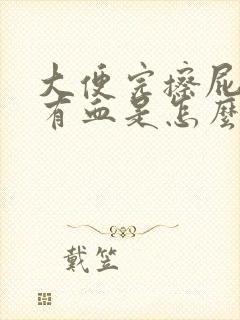 大便完擦屁
有血是怎麼
戴笠